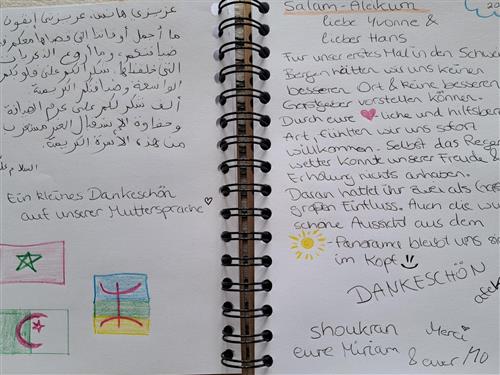 عزيزي هانس، عزيزتي ايفون
ما أجمل أوقاتنا التي قضيناها معكم و
ضيافتكم، وما أروع الذكريات
التي خلفتها. شكرا لكم على قلوبكم
الواسعة وضيافتكم الكريمة.
ألف شكر لكم على كرم الضيافة
وحفاوة الاستقبال الغير مستغرب
من هذه الأسرة الكريمة.
السلام
Ein kleines Dankeschön
auf unserer Muttersprache
Salam-Aleikum
liebe Yvonne &
lieber Hans
Für unser erstes Mal in den Schwei
Bergen hätten wir uns keinen
besseren Ort & keine besseren
Gastgeber vorstellen können.
Durch eure ♥-liche und hilfsberei
Art, fühlten wir uns sofort
willkommen. Selbst das Regen
wetter konnte unserer Freude &
Erholung nichts anhaben.
Daran hattet ihr zwei als Gast
großen Einfluss. Auch die wu
schöne Aussicht aus dem
-Panorama bleibt uns
im Kopf
DANKESCHÖN
shoukran
Merci
eure Miriam
& euer Mo